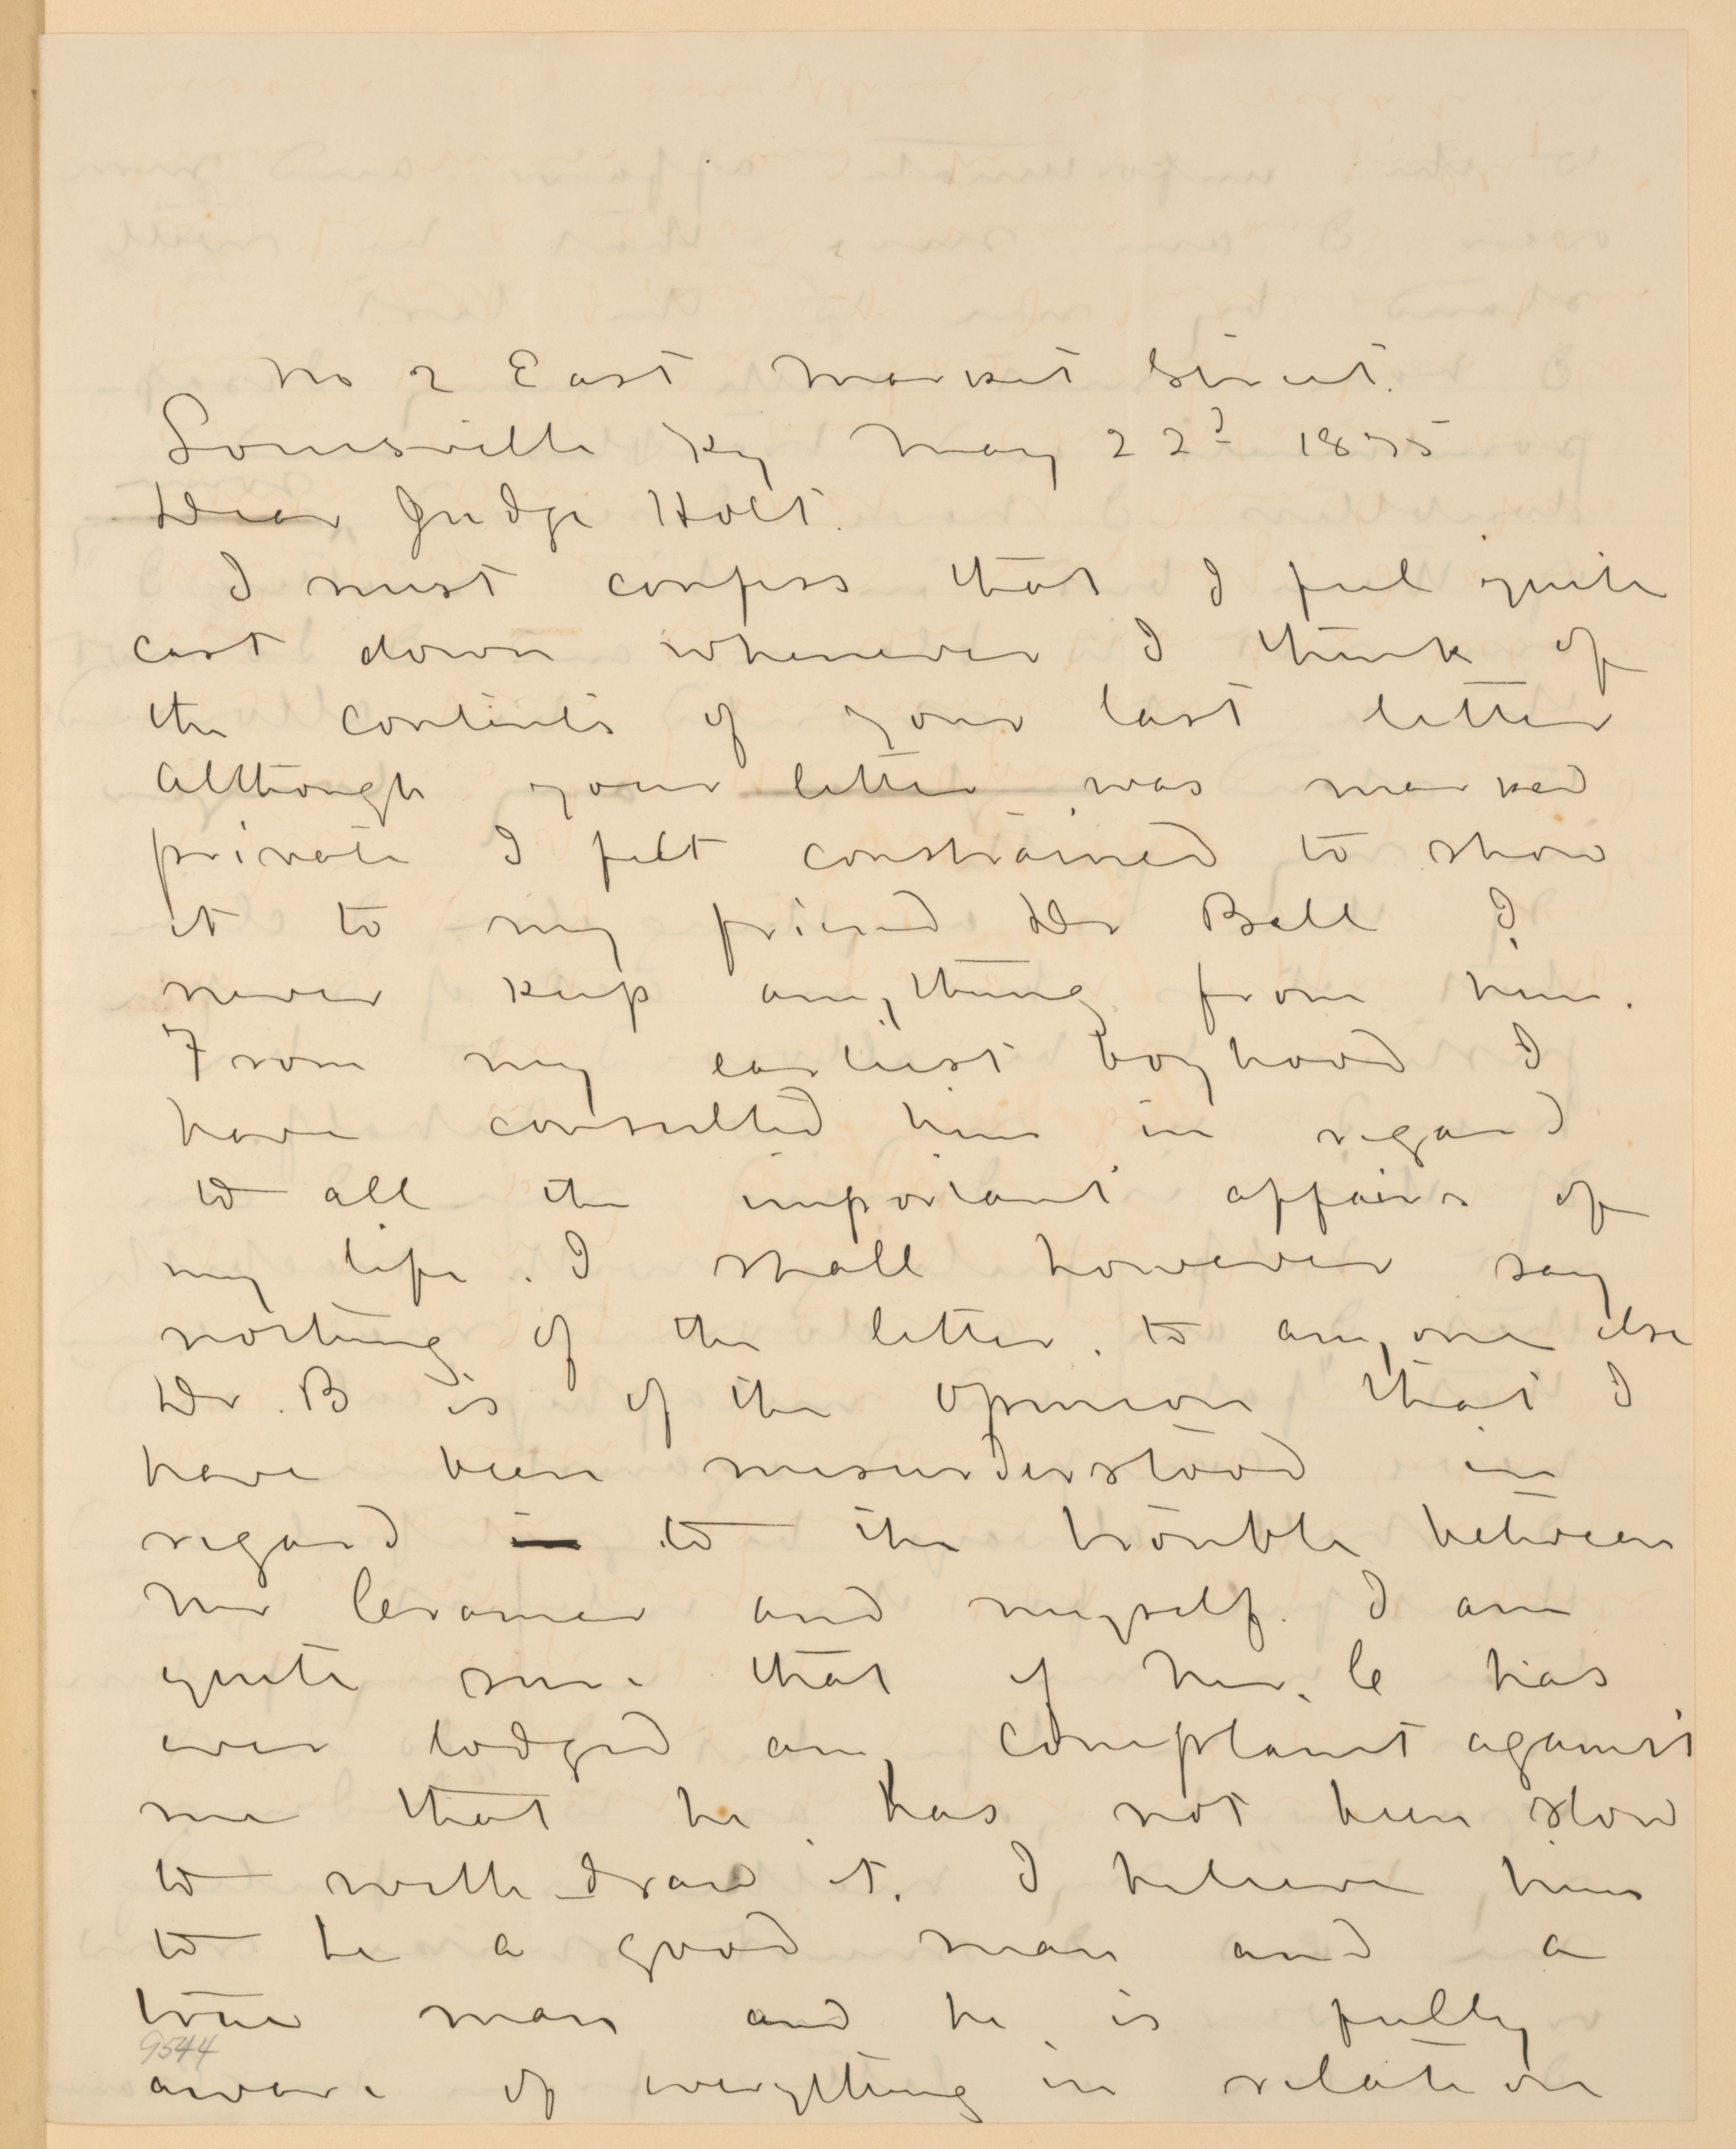 No 2 East Market Street.
Louisville Ky May 22d 1875
Dear Judge Holt.
I must confess that I feel quite
cast down whenever I think of
the contents of your last letter
Although your letter was marked
private I felt constrained to show
it to my friend Dr Bell I
never keep anything from him.
From my earliest boyhood I
have consulted him in regard
to all the important affairs of
my life. I shall however say
nothing of the letter. to any one else
Dr. B is of the opinion that I
have been misunderstood in
regard to the trouble between
Mr Cramer and myself. I am
quite sure that if Mr. C has
ever lodged any complaint against
me that he has not been slow
to with draw it. I believe him
to be a good man and a
true man and he is fully
9544
aware of everything in relation